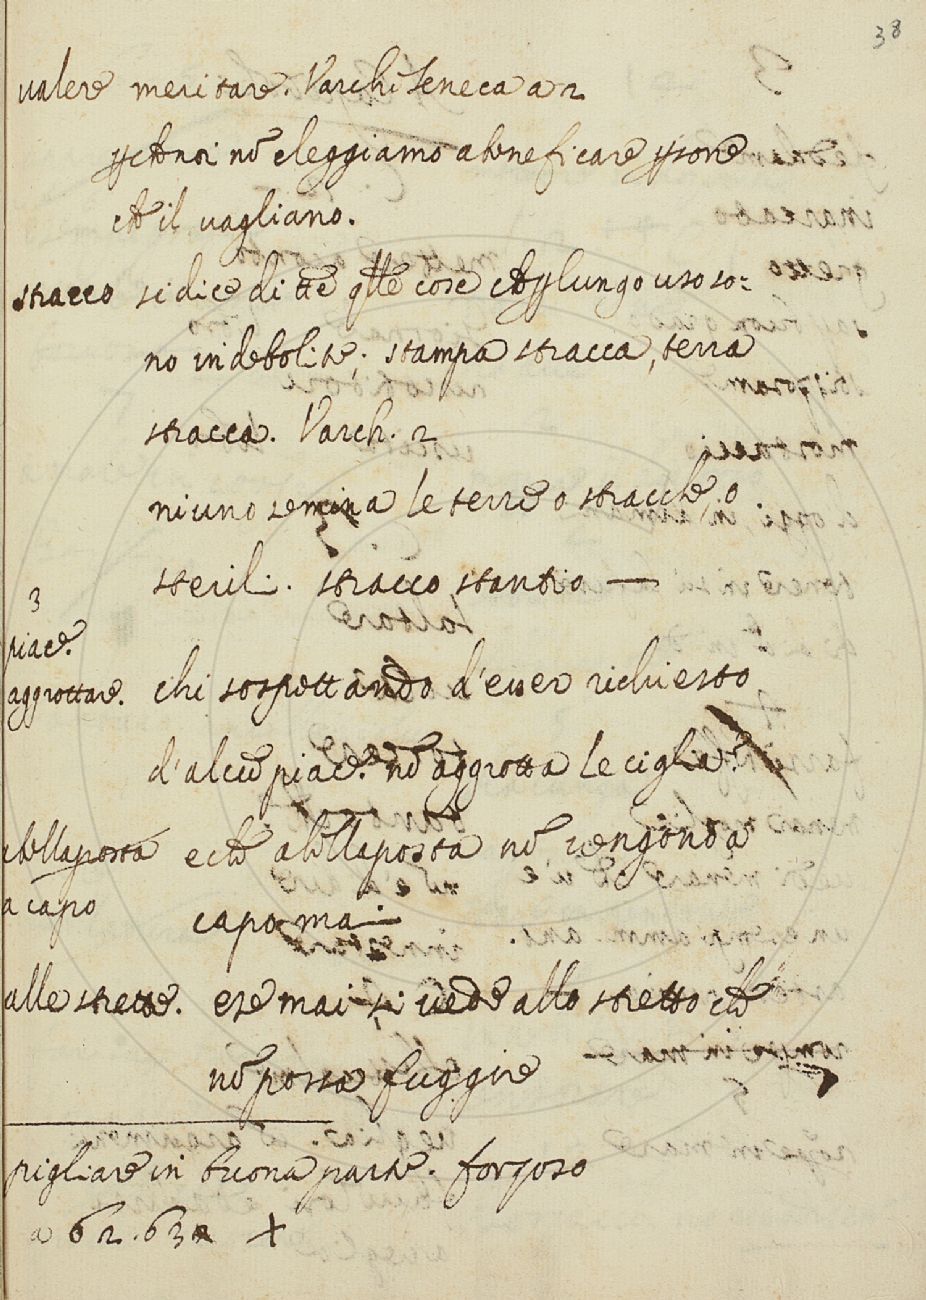 38
valere meritare. Varchi Seneca a 2
ꝑche noi nõ eleggiamo a beneficare ꝑsone
che il vagliano.
stracco si dice di tte q̃lle cose che ꝑ lungo uso so:
no indebolite; stampa stracca, terra
stracca. Varch. 2
niuno semina le terre o stracche, o
sterili. stracco, stantio —
3
piac̃e.
aggrottare. chi sospettando d'esser richiesto
d'alcũ piac̃e. nõ aggrotta le ciglia?
abella posta e che abella posta nõ
a capo capo mai
alle strette. e se mai si vede allo stretto che
nõ possa fuggire
pigliare in buona parte. forzoso
a 62. 63 +